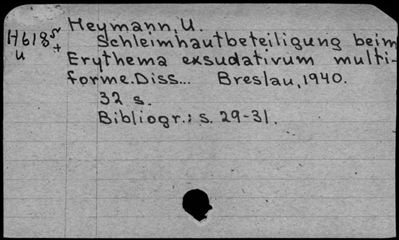 Heymann, U.
H618⁵
Schleimhautbeteiligung beim
u +
Erythema exsudativum multi-
forme. Diss... Breslau, 1940.
32 s.
Bibliogr.: s. 29-31.